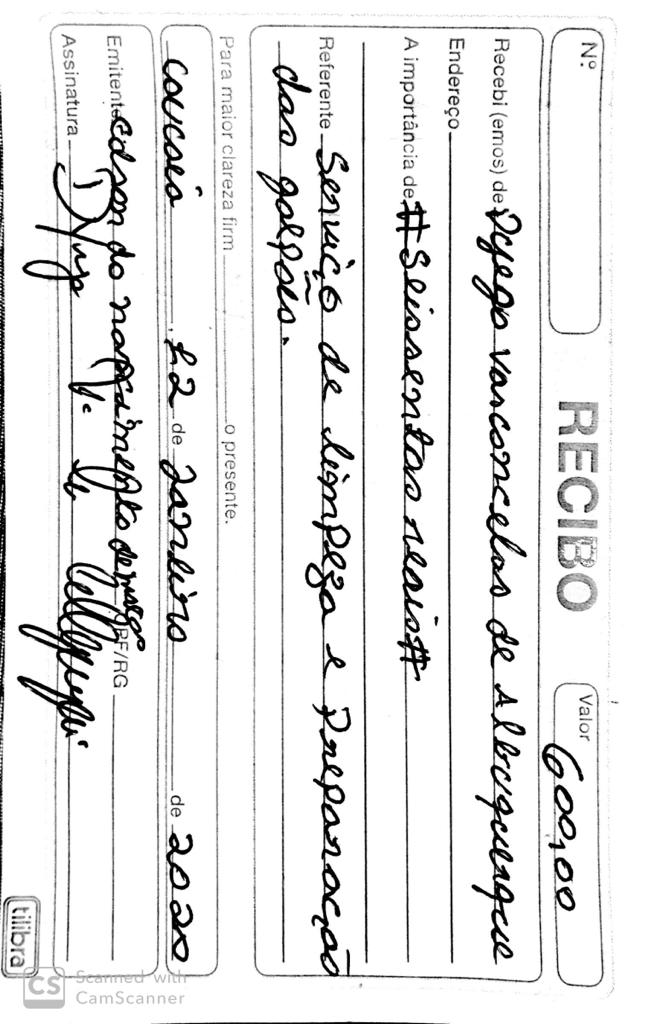 Nº
RECIBO
Valor 600,00
Recebi (emos) de Dyego vasconcelos de Albuquerque
Endereço
A importância de # Seissentos reais #
Referente Serviço de limpeza e Preparação
das galpões.
Para maior clareza firm o presente.
caucaia, 12 de Janeiro de 2020
Emitente Edson do nascimento de CPF/RG
Assinatura
tilibra
CS Scanned with
CamScanner